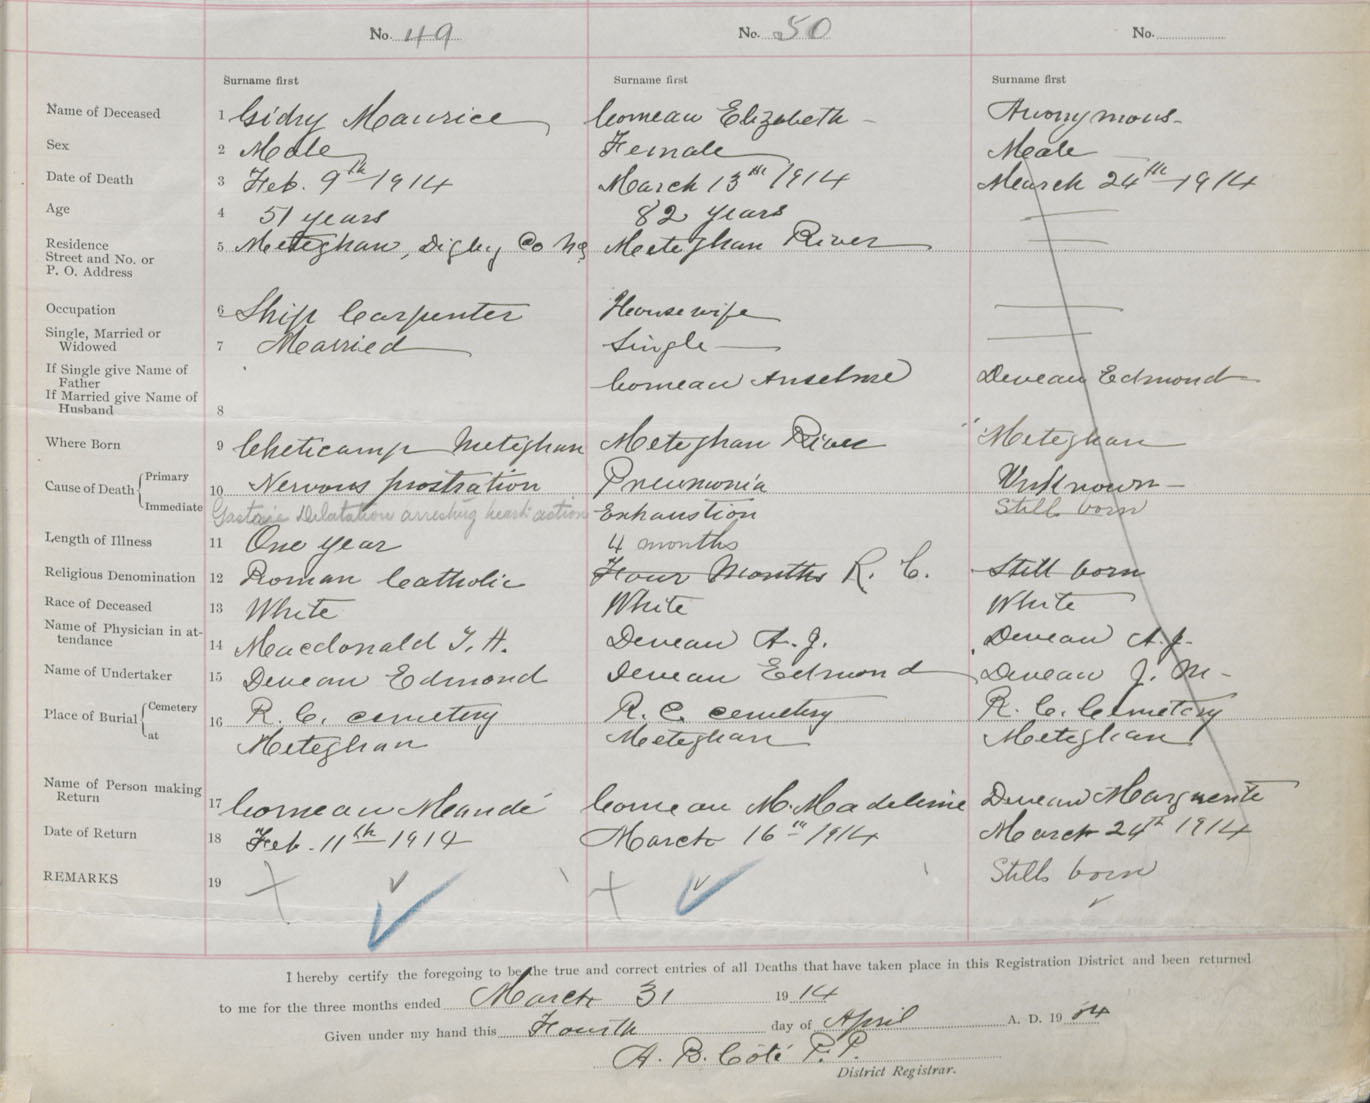 No. 49 No. 50 No.
Surname first Surname first Surname first
Name of Deceased 1 Gidry Maurice Comeau Elizabeth - Anonymous -
Sex 2 Male Female Male
Date of Death 3 Feb. 9th 1914 March 13th 1914 March 24th 1914
Age 4 51 years 82 years
Residence Street and No. or P. O. Address 5 Meteghan, Digby Co NS Meteghan River
Occupation 6 Ship Carpenter Housewife
Single, Married or Widowed 7 Married Single
If Single give Name of Father Comeau Anselme Deveau Edmond
If Married give Name of Husband 8
Where Born 9 Cheticamp Meteghan Meteghan River Meteghan
Cause of Death Primary 10 Nervous prostration Pneumonia Unknown -
Immediate Gastric Dilatation arresting heart action Exhaustion Still born
Length of Illness 11 One year 4 months
Religious Denomination 12 Roman Catholic Four Months R. C. Still born
Race of Deceased 13 White White White
Name of Physician in attendance 14 Macdonald T. H. Deveau A. J. Deveau A. J.
Name of Undertaker 15 Deveau Edmond Deveau Edmond Deveau J. M -
Place of Burial Cemetery 16 R. C. cemetery R. C. cemetery R. C. Cemetery
at Meteghan Meteghan Meteghan
Name of Person making Return 17 Comeau Mandé Comeau M. Madeleine Deveau Marguerite
Date of Return 18 Feb. 11th 1914 March 16th 1914 March 24th 1914
REMARKS 19 Still born
I hereby certify the foregoing to be the true and correct entries of all Deaths that have taken place in this Registration District and been returned
to me for the three months ended March 31 1914
Given under my hand this Fourth day of April A. D. 1914
A. B. Côté P. P.
District Registrar.